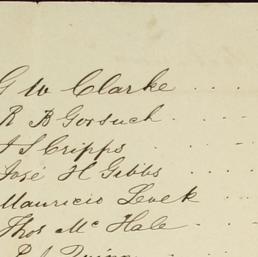 G W Clarke . . . .
R B Gorsuch . . . .
J S Cripps . . . .
José H Gibbs . . . .
Mauricio Levek . . .
Thos Mc Hale . . . .